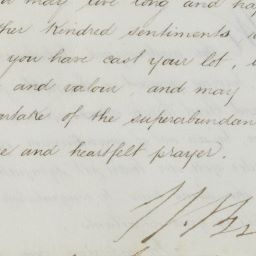 may live long and hap
ther Kindred sentiments
you have cast your lot,
and valour, and may
rtake of the superabundan
e and heartfelt prayer.